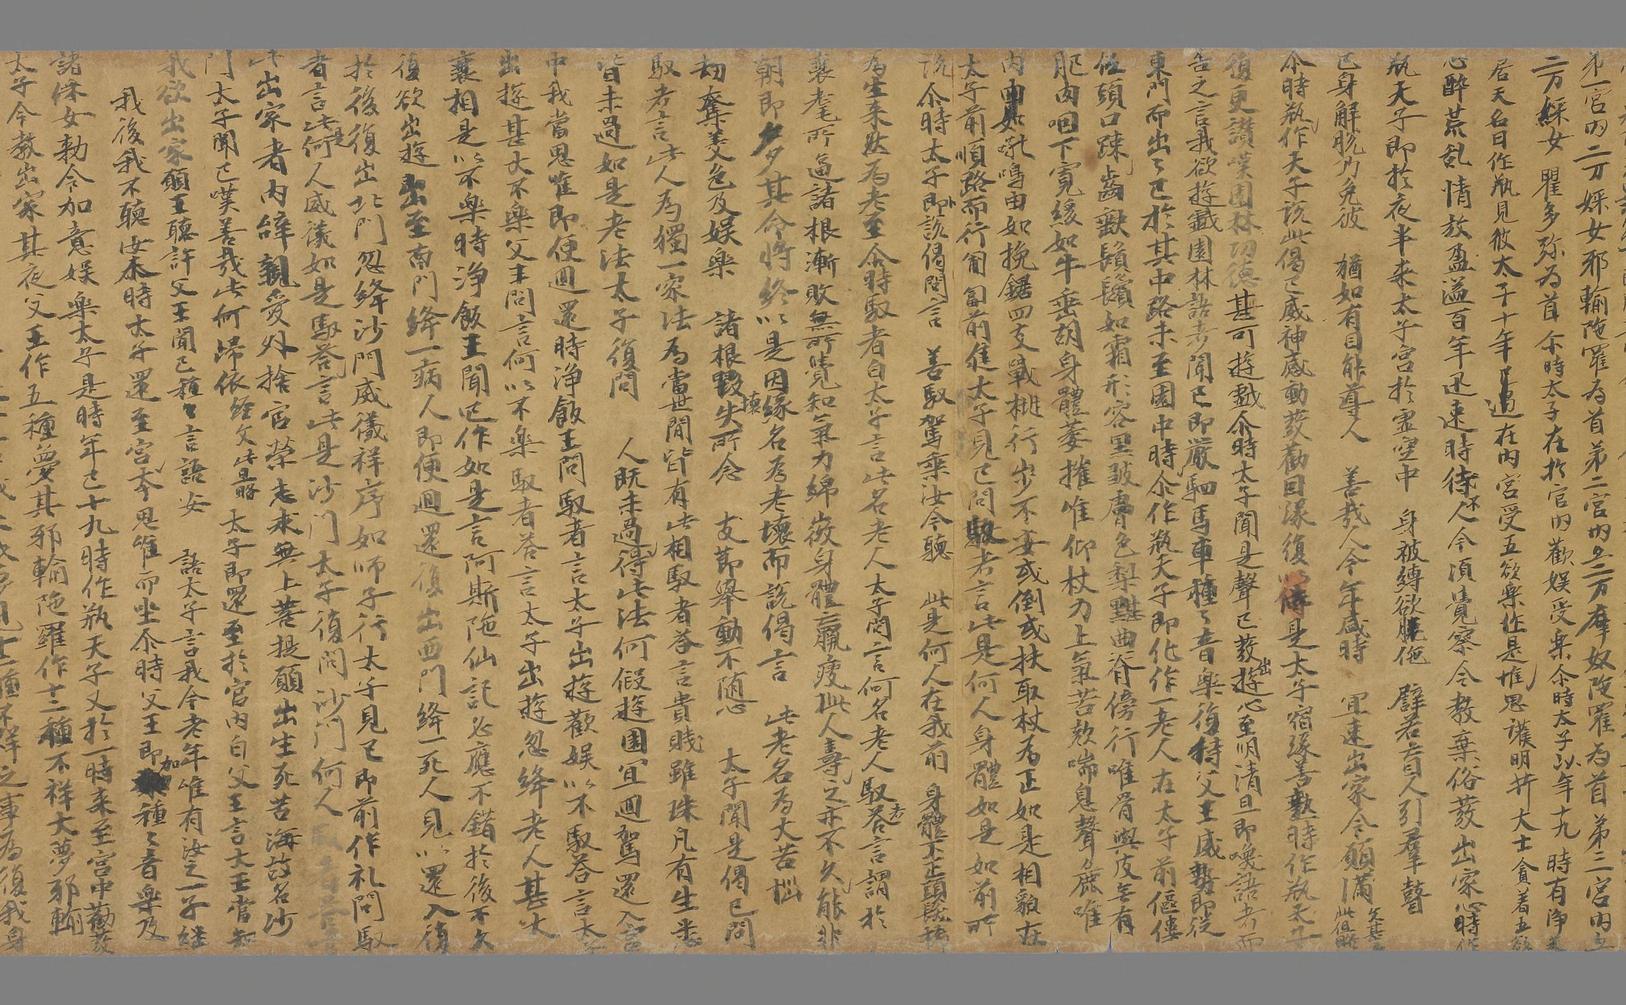 第一宮內二万婇女耶輸陁羅為首第二宮內二万摩奴陁羅為首第三宮內
二万綵女瞿多弥為首尒時太子在於宮內歡娛受樂尒時太子以年十九時有淨
居天名曰作瓶見彼大子十年已過在內宮受五欲樂作是惟思護明菩大士貪着五欲
心醉荒乱情放盈溢百年迅速時不待人今湏覺察令教棄俗發出家心時作
瓶天子即於夜半來太子宮於虛空中 身被縛欲脫他 譬若盲人引羣瞽
己身解脫乃免彼 猶如有目能導人 善哉人今年盛時 冝速出家令願滿
尒時瓶作天子說此偈已威神感動發勸因緣復以是太子宿緣善熟時作瓶天子
復更讚嘆園林功德甚可遊戲尒時太子聞是聲已發出遊心至明清旦即喚語者而
告之言我欲遊戲園林語者聞已即嚴駟馬車種々音樂復持父王威勢即從
東門而出々已於其中路未至園中時尒作瓶天子即化作一老人在太子前傴僂
低頭口踈齒歠鬚鬢如霜形容黑皺膚色犁黮曲脊傍行唯骨與皮无有
肥肉咽下寬緩如牛垂胡身體萎摧唯仰杖力上氣苦欬喘息聲麁唯
內由如吼鳴由如挽鋸四支戰桃行步不妄或倒或扶取杖為正如是相貌在
太子前順路而行匍匐前進太子見已問馭者言此是何人身體如是如前所
說尒時太子即說偈問言 善馭駕乘汝今聽 此是何人在我前 身體不正頭髮稀
為生来然為老至尒時馭者白太子言此名老人太子問言何名老人馭者荅言謂於
衰耄所逼諸根漸敗無所覺知氣力綿微身體羸瘦此人壽之亦不久能非
朝即夕其命將終以是因緣名為老壞而說偈言 此老名為大苦惱
劫奪美色及娛樂 諸根毀壞失所念 支節舉動不隨心 太子聞是偈已問
馭者言此人為獨一家法為當世間皆有此相馭者荅言貴賤雖殊凡有生悉
皆未過如是老法太子復問 人既未過得此法何假遊園冝迴駕還入宮
中我當思唯即便迴還時淨飯王問馭者言太子出遊歡娛以不馭荅言太子
出遊甚大不樂父王問言何以不樂馭者荅言太子出遊忽絳老人甚大
衰相是以不樂時淨飯王聞已作如是言阿斯陁仙記必應不錯於後不久
復欲出遊出至南門絳一病人即便迴還還復出西門絳一死人見以還入復
於後復出北門忽絳沙門威儀祥序如师子行太子見已即前作礼問馭
者言此是何人威儀如是馭荅言此是沙門太子復問沙門何人馭者荅言
此出家者內辭親愛外捨官榮志求無上菩提願出生死苦海故名沙
門太子聞已嘆善哉此何歸依經文此畧太子即還至於宮內白父王言大王當知
我欲出家願王聽許父王聞已種々言語安 語太子言我今老年唯有汝之一子終
我後我不聽汝尒時太子還至宮今思惟而坐尒時父王即加種々音樂及
諸婇女勅令加意娛樂太子是時年已十九時作瓶天子又於一時来至宮中勸發
太子令教出家其夜父王作五種夢其耶輸陁羅作十二種不祥大夢耶輸